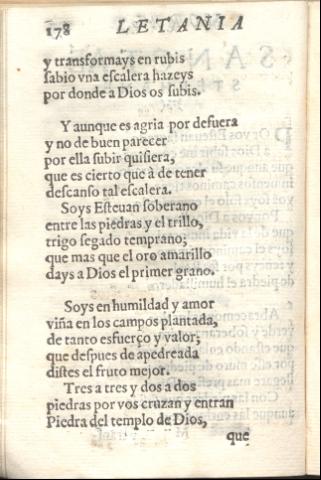 178 LETANIA
y transformays en rubis
sabio vna escalera hazeys
por donde a Dios os subis.
Y aunque es agria por defuera
y no de buen parecer
por ella subir quisiera,
que es cierto que à de tener
descanso tal escalera.
Soys Esteuan soberano
entre las piedras y el trillo,
trigo segado temprano;
que mas que el oro amarillo
days a Dios el primer grano.
Soys en humildad y amor
viña en los campos plantada,
de tanto esfuerço y valor;
que despues de apedreada
distes el fruto mejor.
Tres a tres y dos a dos
piedras por vos cruzan y entran
Piedra del templo de Dios,
que